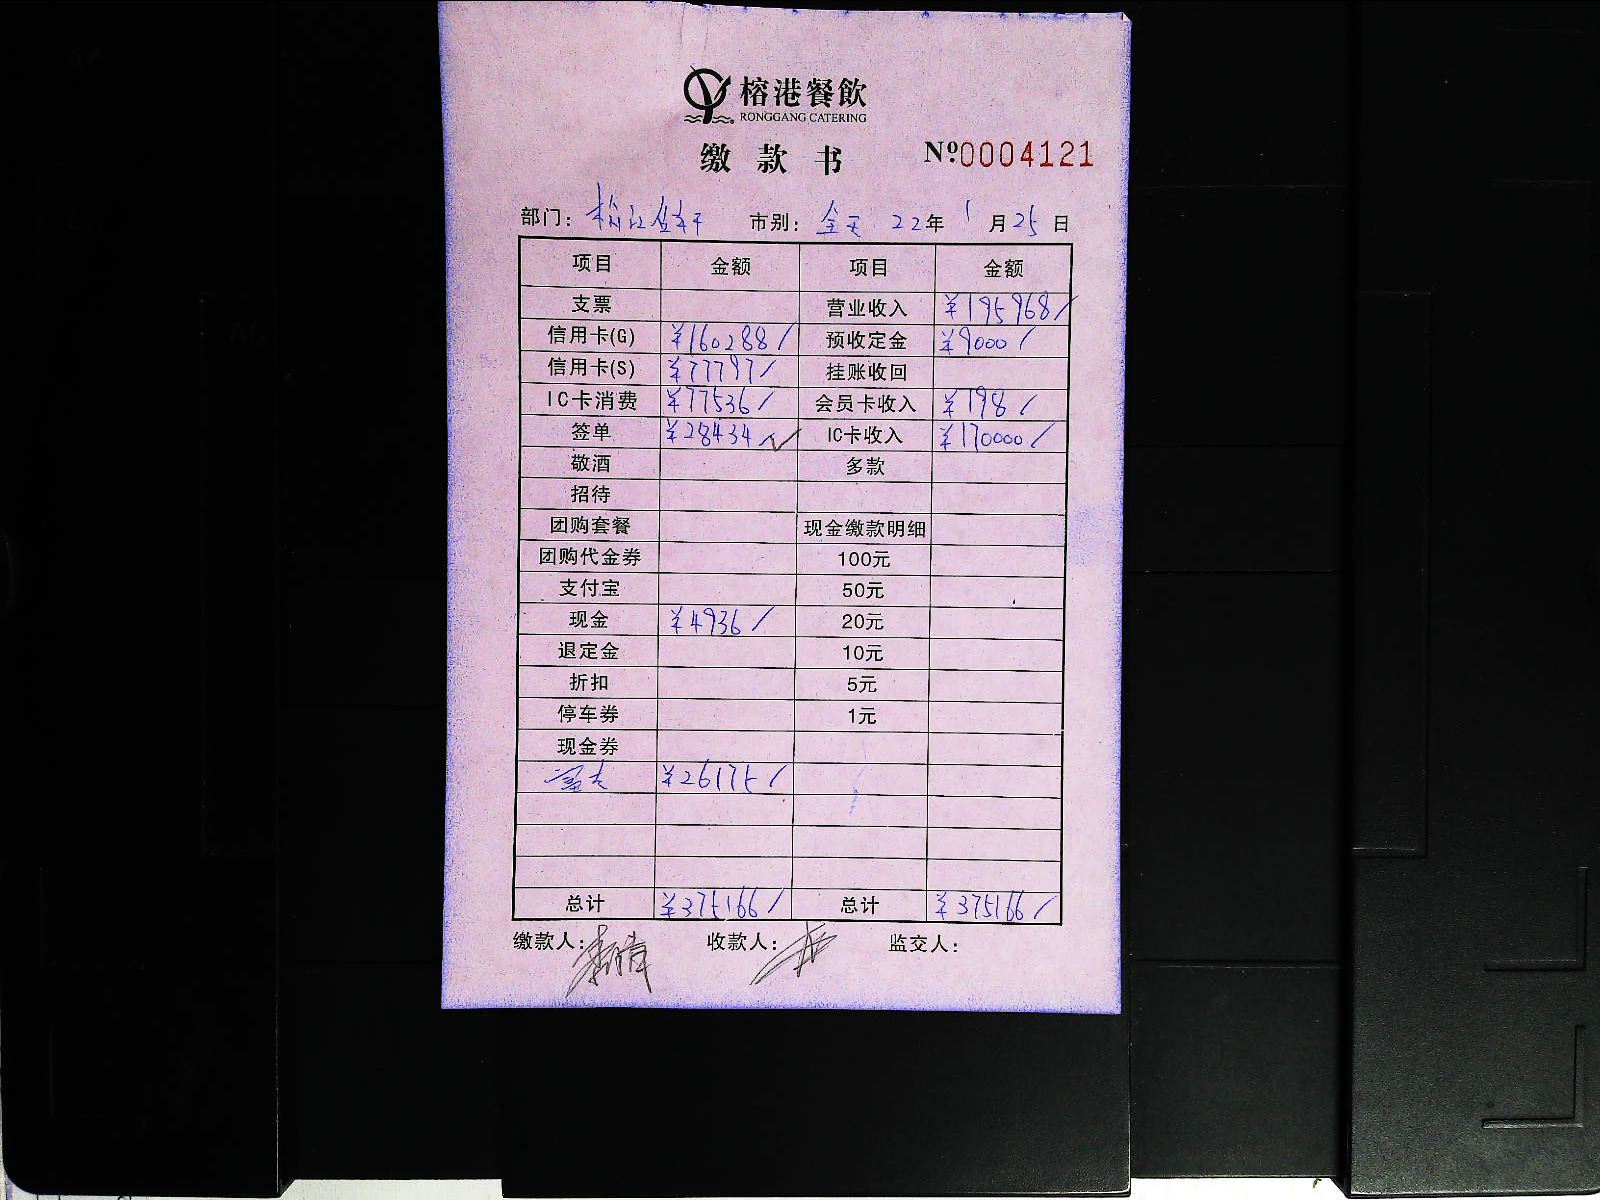 榕港餐飲
RONGGANG CATERING
缴款书 №0004121
部门: 市别: 全天 22年 1月25日
项目 金额 项目 金额
支票 营业收入 ¥195968/
信用卡(G) ¥160288/ 预收定金 ¥9000/
信用卡(S) ¥77797/ 挂账收回
IC卡消费 ¥77536/ 会员卡收入 ¥198/
签单 ¥28434 IC卡收入 ¥170000/
敬酒 多款
招待
团购套餐 现金缴款明细
团购代金券 100元
支付宝 50元
现金 ¥4936/ 20元
退定金 10元
折扣 5元
停车券 1元
现金券
¥26175/
总计 ¥375166/ 总计 ¥375166/
缴款人: 收款人: 监交人: